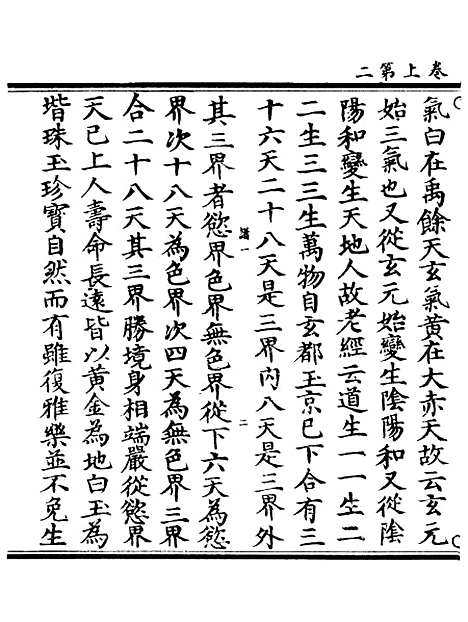 卷上第二
氣白在禹餘天玄氣黃在大赤天故云玄元
始三氣也又從玄元始變生陰陽和又從陰
陽和變生天地人故老經云道生一一生二
二生三三生萬物自玄都玉京已下合有三
十六天二十八天是三界內八天是三界外
二
其三界者慾界色界無色界從下六天為慾
界次十八天為色界次四天為無色界三界
合二十八天其三界勝境身相端嚴從慾界
天已上人壽命長遠皆以黃金為地白玉為
堦珠玉珍寶自然而有雖復雅樂並不免生